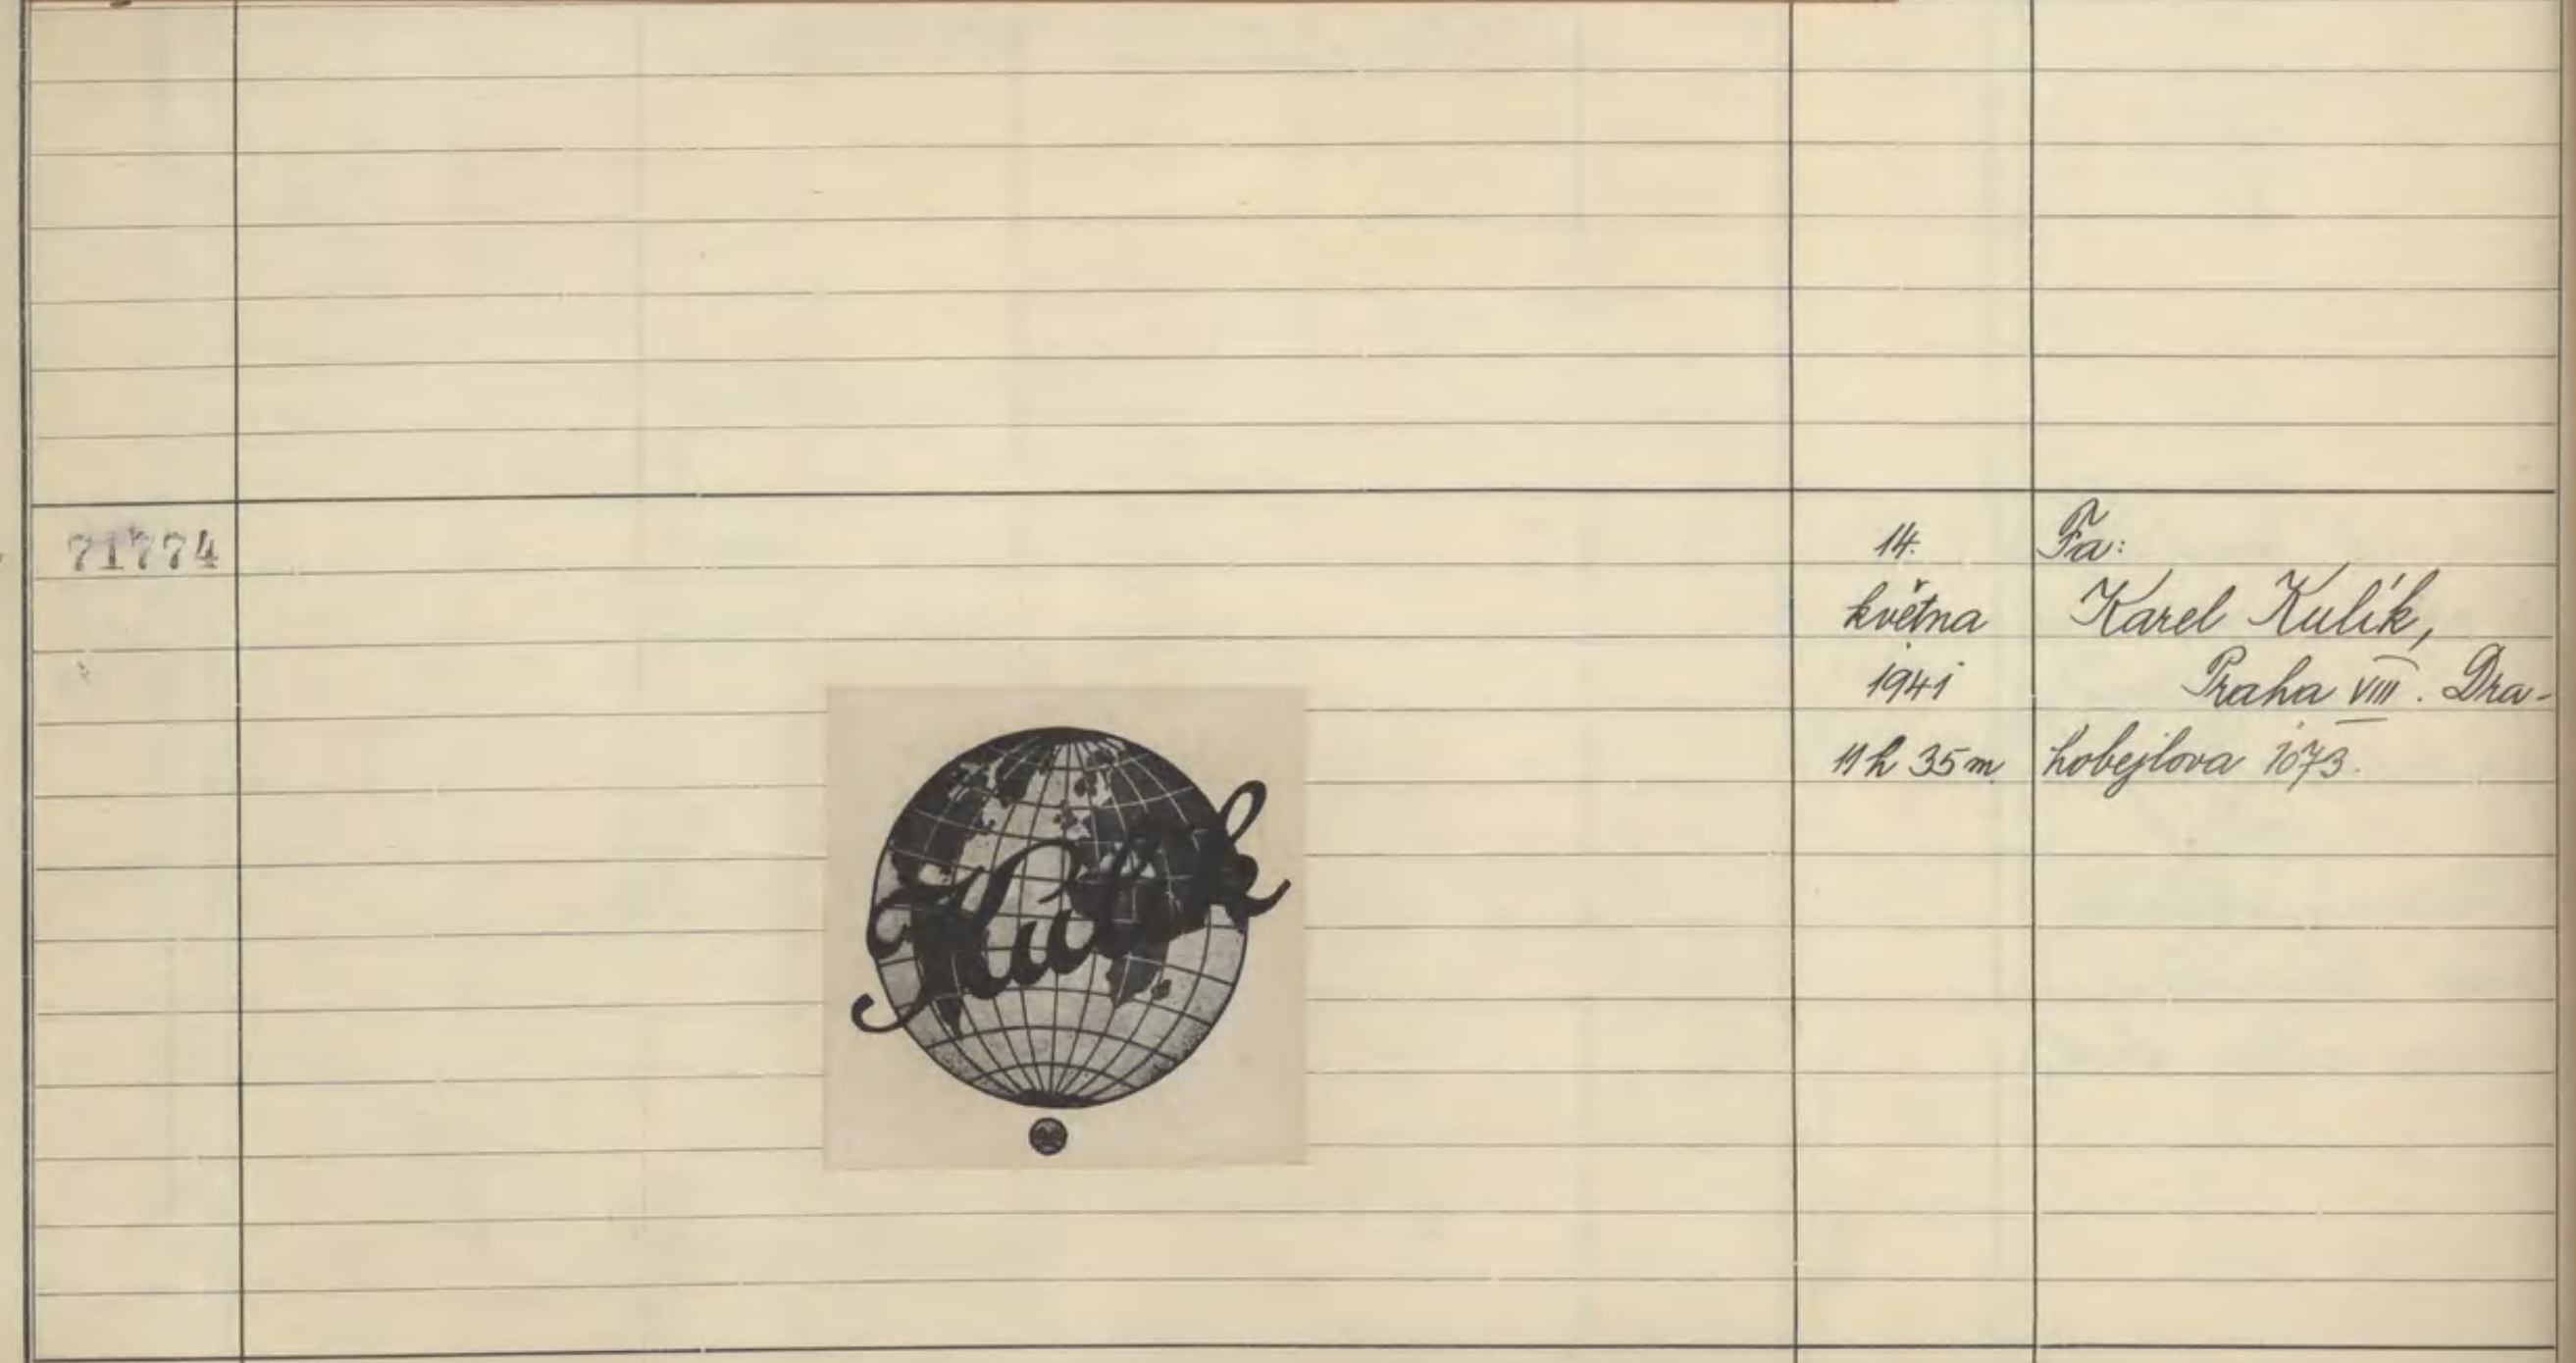 71774
Kulík
14.
května
1941
11 h 35 m
Fa:
Karel Kulík,
Praha VIII. Dra-
hobejlova 1073.